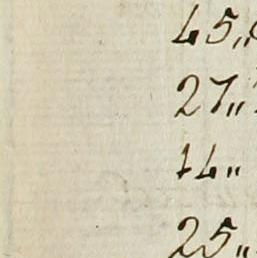 45„
27„
14„
25„